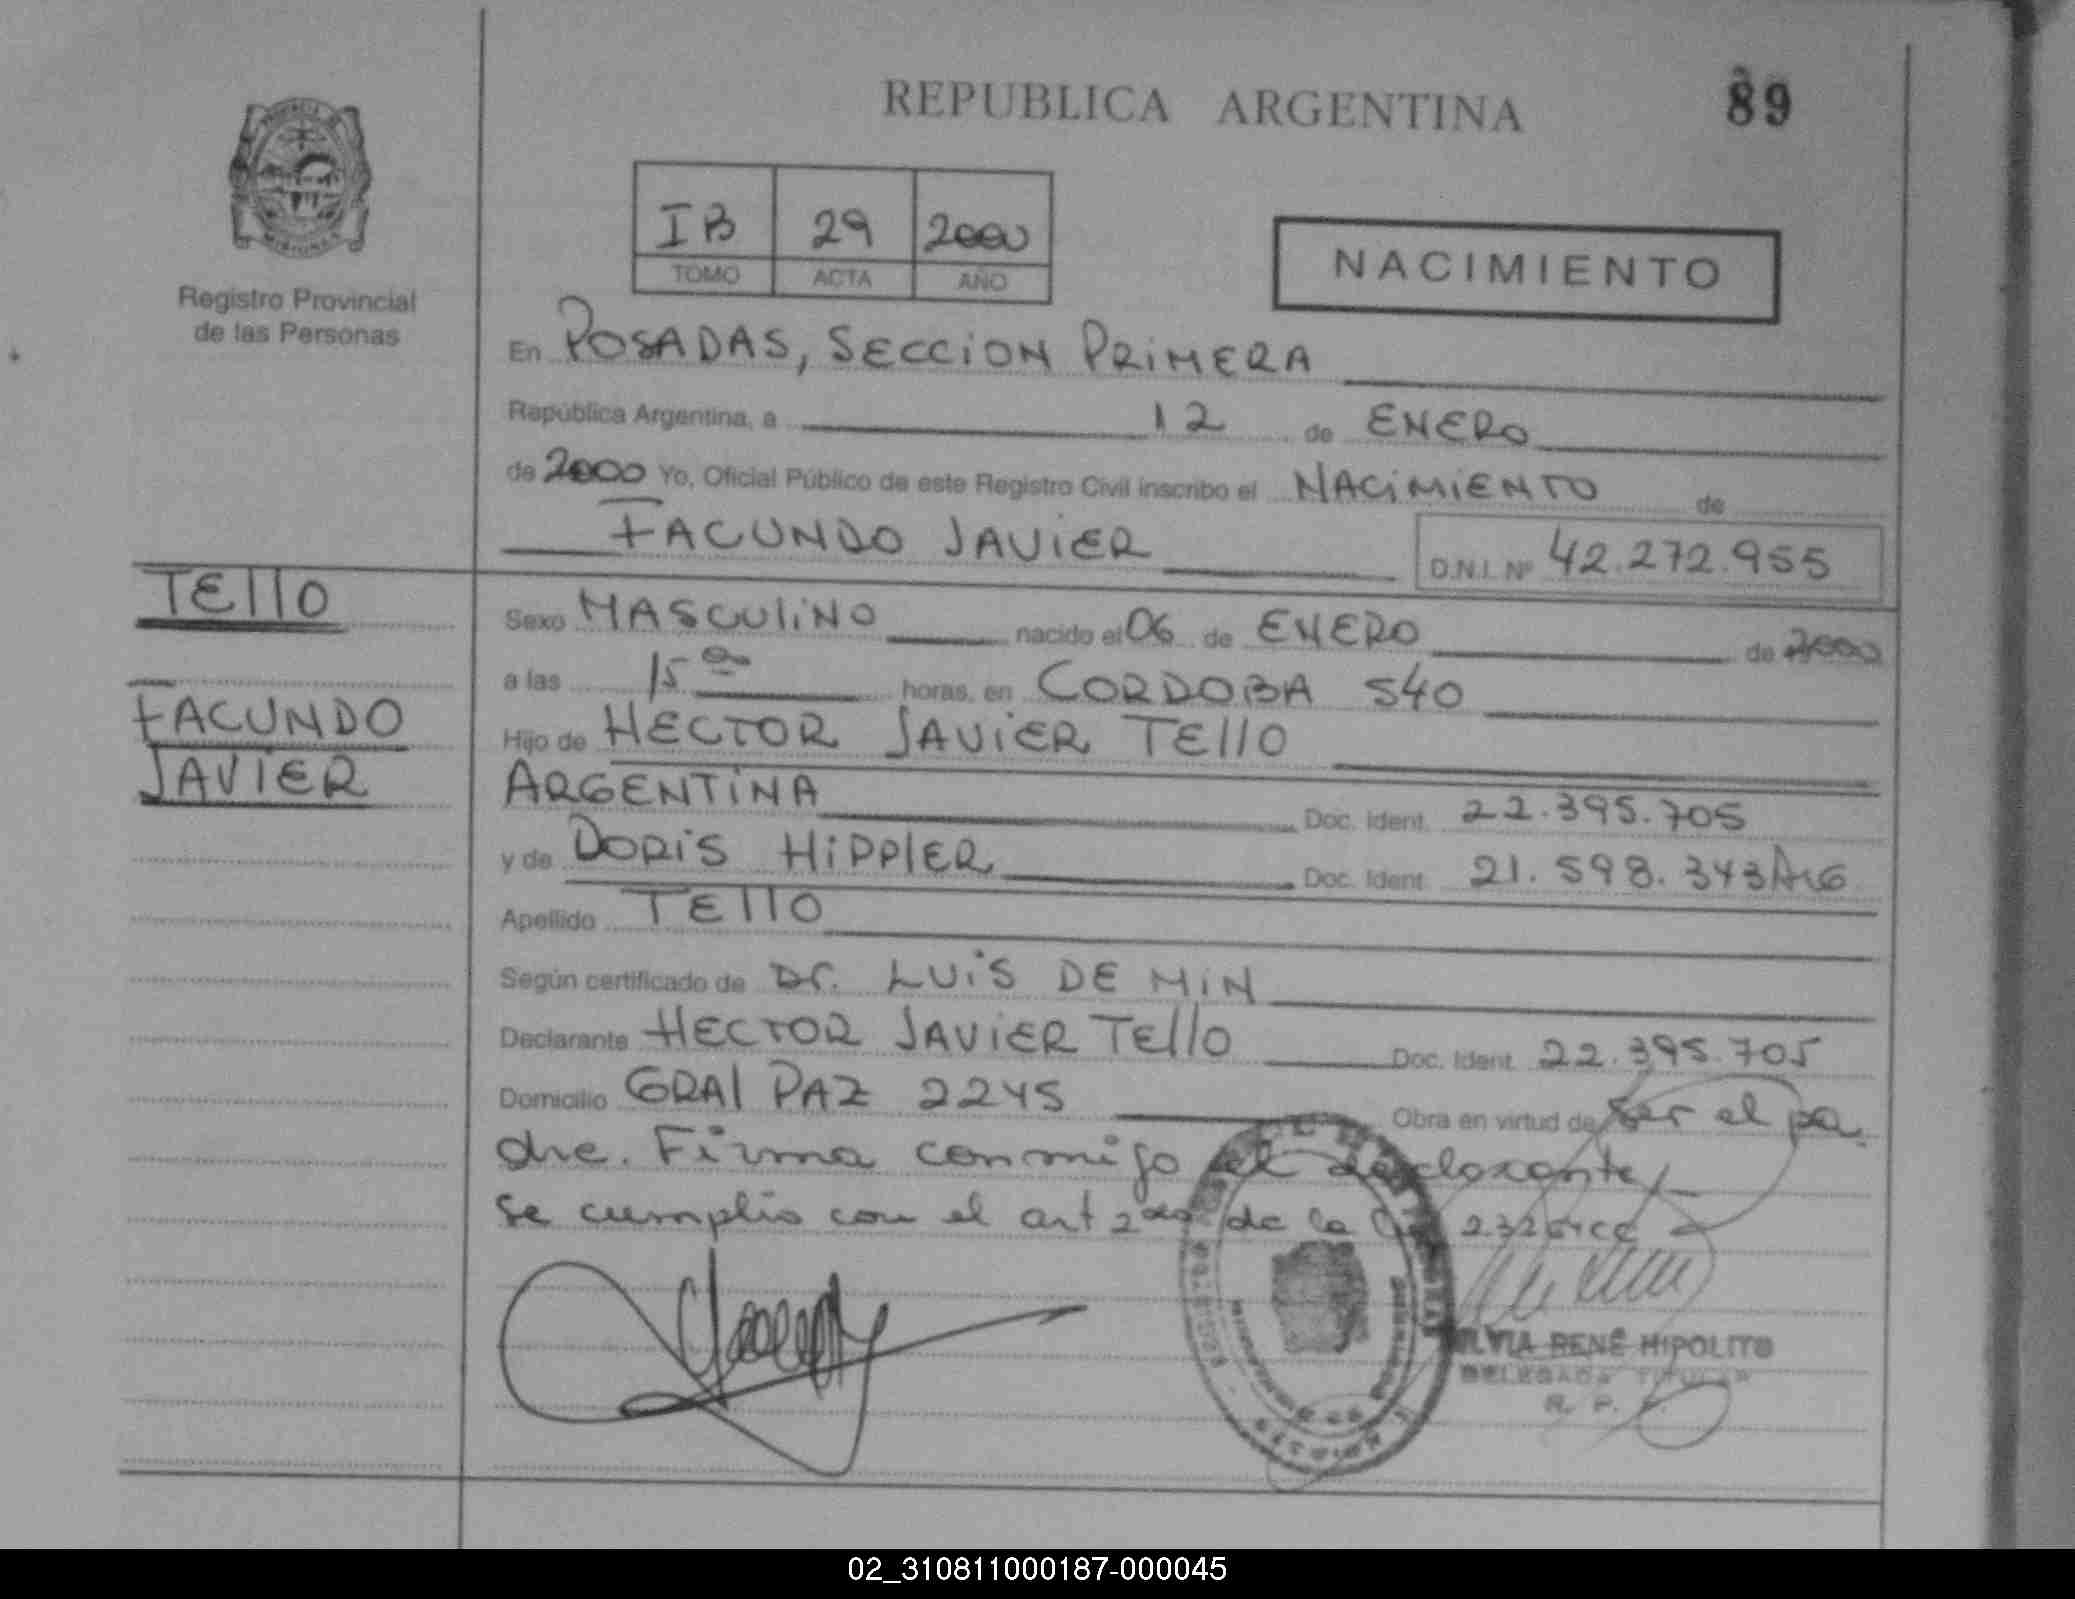 REPUBLICA ARGENTINA
89
PROVINCIA DE
MISIONES
Registro Provincial
de las Personas
IB 29 2000
TOMO ACTA AÑO
NACIMIENTO
En POSADAS, SECCION PRIMERA
República Argentina, a 12 de ENERO
de 2000 Yo, Oficial Público de este Registro Civil inscribo el NACIMIENTO de
FACUNDO JAVIER D.N.I. Nº 42.272.955
TELLO
FACUNDO
JAVIER
Sexo MASCULINO nacido el 06 de ENERO de 2000
a las 15 00 horas, en CORDOBA 540
Hijo de HECTOR JAVIER TELLO
ARGENTINA Doc. Ident. 22.395.705
y de DORIS HIPPLER Doc. Ident. 21.598.343 ARG
Apellido TELLO
Según certificado de Dr. LUIS DE MIN
Declarante HECTOR JAVIER TELLO Doc. Ident. 22.395.705
Domicilio GRAL PAZ 2245 Obra en virtud de ser el pa
dre. Firma conmigo el declarante,
se cumplio con el art 2do de la
SILVIA RENÉ HIPOLITO
DELEGADA TITULAR
R. P. P.
02_310811000187-000045